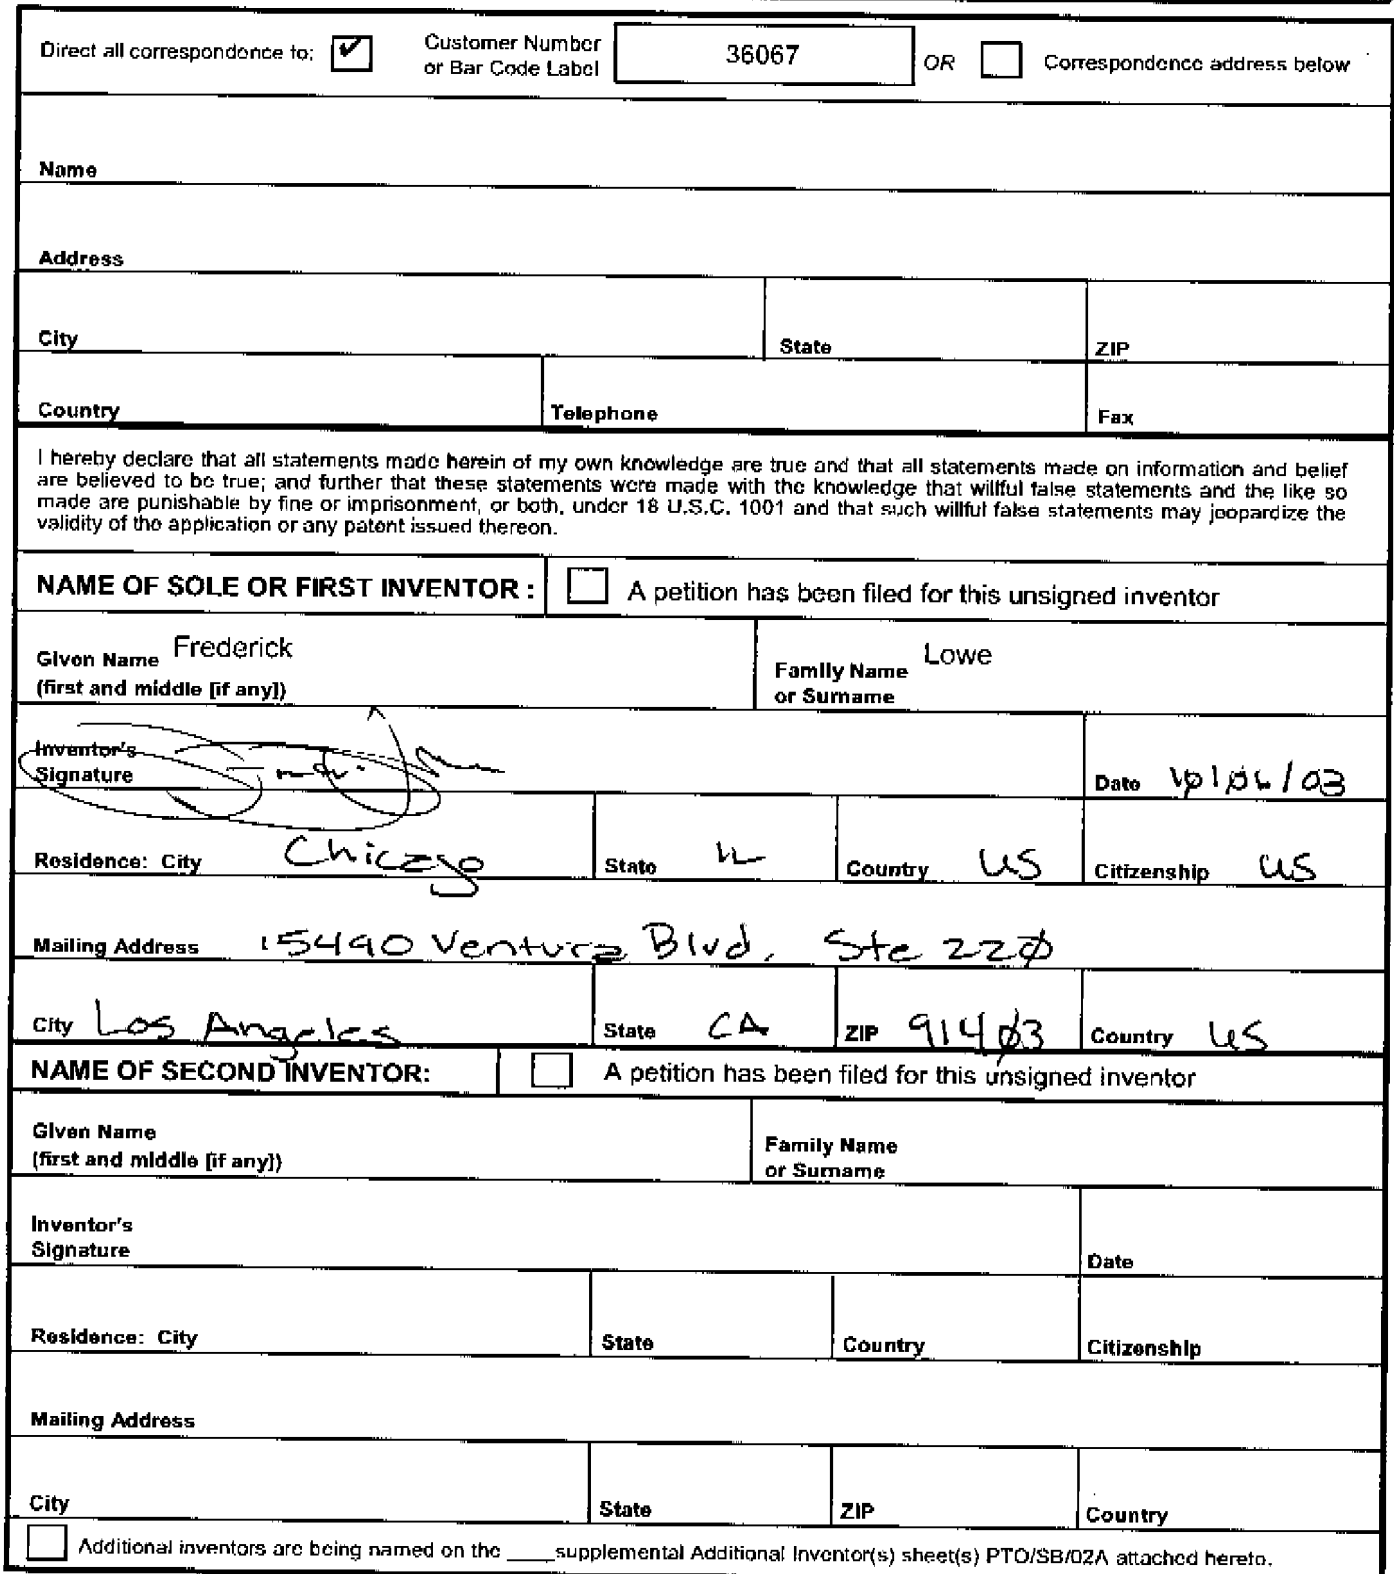 Direct all correspondence to: ✔ Customer Number or Bar Code Label 36067 OR Correspondence address below
Name
Address
City State ZIP
Country Telephone Fax
I hereby declare that all statements made herein of my own knowledge are true and that all statements made on information and belief
are believed to be true; and further that these statements were made with the knowledge that willful false statements and the like so
made are punishable by fine or imprisonment, or both, under 18 U.S.C. 1001 and that such willful false statements may jeopardize the
validity of the application or any patent issued thereon.
NAME OF SOLE OR FIRST INVENTOR : A petition has been filed for this unsigned inventor
Given Name Frederick Family Name Lowe
(first and middle [if any]) or Surname
Inventor's
Signature Date 10/06/03
Residence: City Chicago State IL Country US Citizenship US
Mailing Address 15490 Ventura Blvd. Ste 220
City Los Angeles State CA ZIP 91403 Country US
NAME OF SECOND INVENTOR: A petition has been filed for this unsigned inventor
Given Name Family Name
(first and middle [if any]) or Surname
Inventor's
Signature Date
Residence: City State Country Citizenship
Mailing Address
City State ZIP Country
Additional inventors are being named on the ____supplemental Additional Inventor(s) sheet(s) PTO/SB/02A attached hereto.